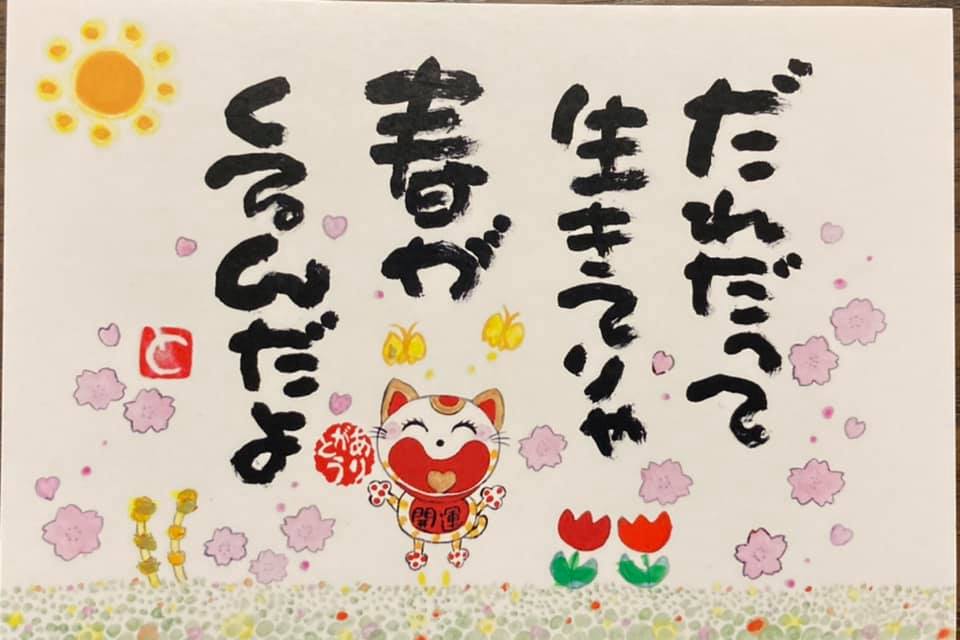 だれだって
生きてりゃ
春が
くるんだよ
ありがとう
開運
と